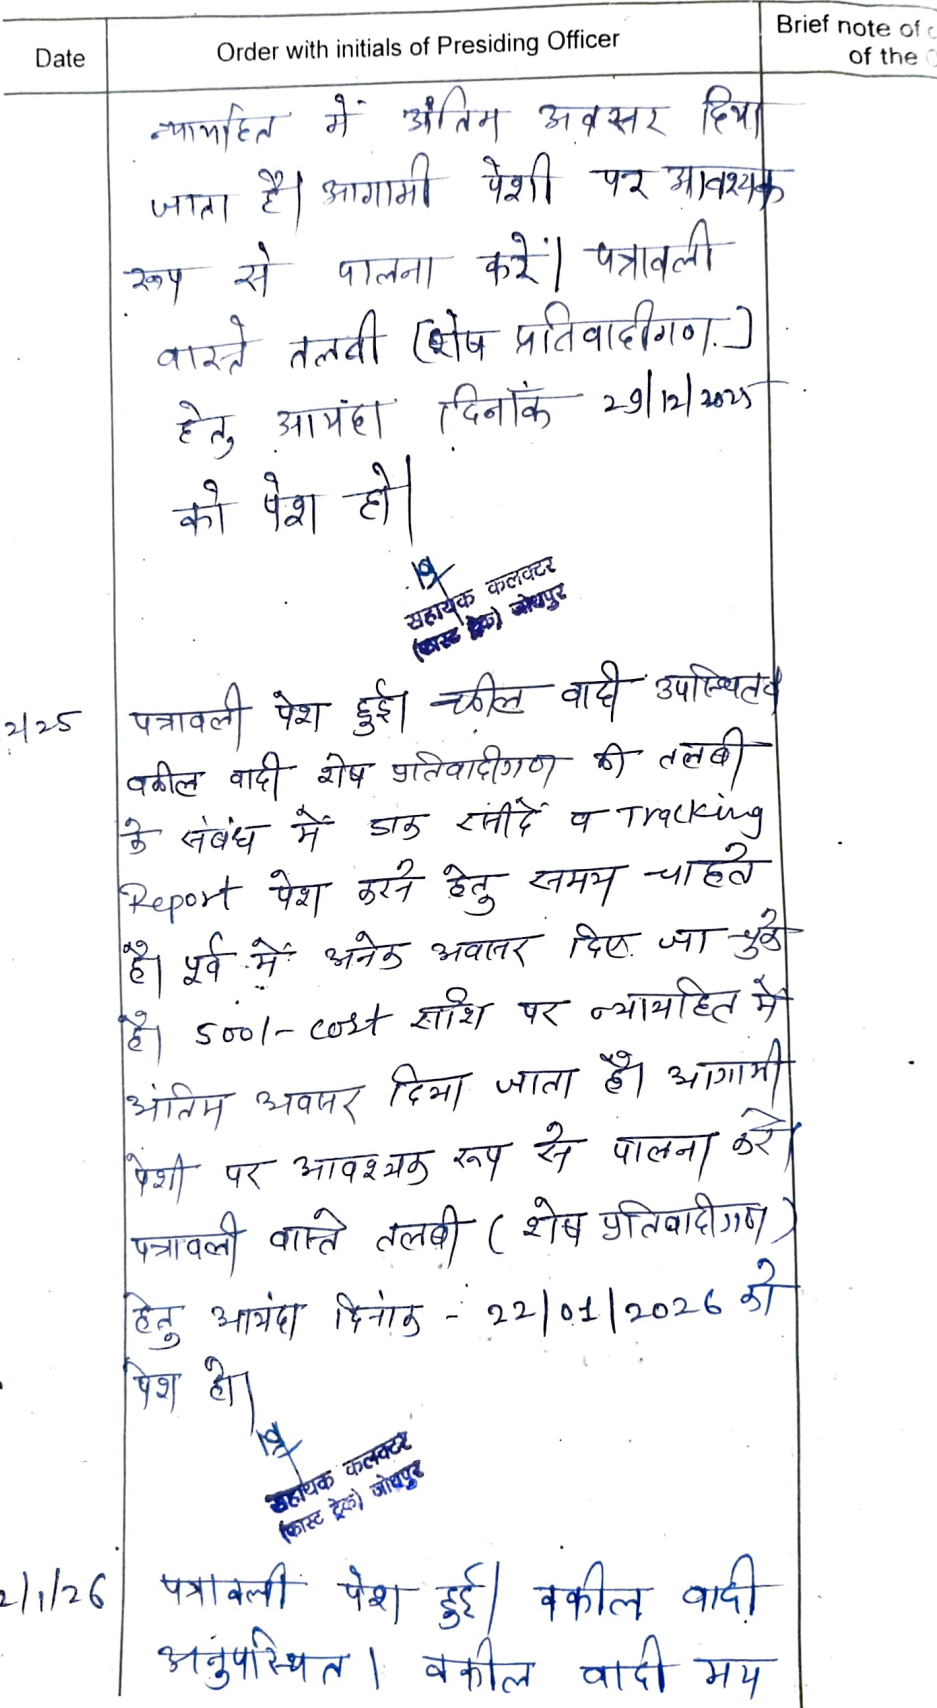 Date
Order with initials of Presiding Officer
Brief note of
of the
न्यायहित में अंतिम अवसर दिया
जाता है। आगामी पेशी पर आवश्यक
रूप से पालना करें। पत्रावली
वास्ते तलबी (शेष प्रतिवादीगण.)
हेतु आयंदा दिनांक 29/12/2025
को पेश हो।
सहायक कलक्टर
(फास्ट ट्रेक) जोधपुर
2/25 पत्रावली पेश हुई। वकील वादी उपस्थित।
वकील वादी शेष प्रतिवादीगण की तलबी
के संबंध में डाक रसीदें व Tracking
Report पेश करने हेतु समय चाहते
है। पूर्व में अनेक अवसर दिए जा चुके
है। 500/- cost राशि पर न्यायहित में
अंतिम अवसर दिया जाता है। आगामी
पेशी पर आवश्यक रूप से पालना करें।
पत्रावली वास्ते तलबी (शेष प्रतिवादीगण)
हेतु आयंदा दिनांक - 22/01/2026 को
पेश हो।
सहायक कलक्टर
(फास्ट ट्रेक) जोधपुर
2/1/26 पत्रावली पेश हुई। वकील वादी
अनुपस्थित। वकील वादी मय